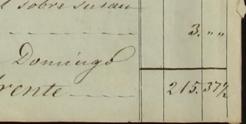 sobre
3. „ „
Domingo
rente 215. 37½